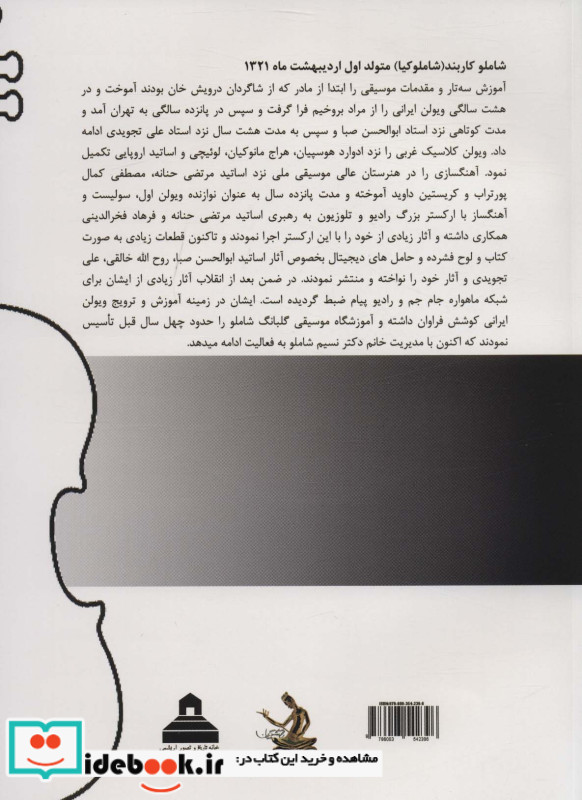 شاملو کاربند(شاملوکیا) متولد اول اردیبهشت ماه ۱۳۲۱
آموزش سه‌تار و مقدمات موسیقی را ابتدا از مادر که از شاگردان درویش خان بودند آموخت و در
هشت سالگی ویولن ایرانی را از مراد بروخیم فرا گرفت و سپس در پانزده سالگی به تهران آمد و
مدت کوتاهی نزد استاد ابوالحسن صبا و سپس به مدت هشت سال نزد استاد علی تجویدی ادامه
داد. ویولن کلاسیک غربی را نزد ادوارد هوسپیان، هراج مانوکیان، لوئیچی و اساتید اروپایی تکمیل
نمود. آهنگسازی را در هنرستان عالی موسیقی ملی نزد اساتید مرتضی حنانه، مصطفی کمال
پورتراب و کریستین داوید آموخته و مدت پانزده سال به عنوان نوازنده ویولن اول، سولیست و
آهنگساز با ارکستر بزرگ رادیو و تلوزیون به رهبری اساتید مرتضی حنانه و فرهاد فخرالدینی
همکاری داشته و آثار زیادی از خود را با این ارکستر اجرا نمودند و تاکنون قطعات زیادی به صورت
کتاب و لوح فشرده و حامل های دیجیتال بخصوص آثار اساتید ابوالحسن صبا، روح الله خالقی، علی
تجویدی و آثار خود را نواخته و منتشر نمودند. در ضمن بعد از انقلاب آثار زیادی از ایشان برای
شبکه ماهواره جام جم و رادیو پیام ضبط گردیده است. ایشان در زمینه آموزش و ترویج ویولن
ایرانی کوشش فراوان داشته و آموزشگاه موسیقی گلبانگ شاملو را حدود چهل سال قبل تأسیس
نمودند که اکنون با مدیریت خانم دکتر نسیم شاملو به فعالیت ادامه میدهد.
مشاهده و خرید این کتاب در:
idebook.ir